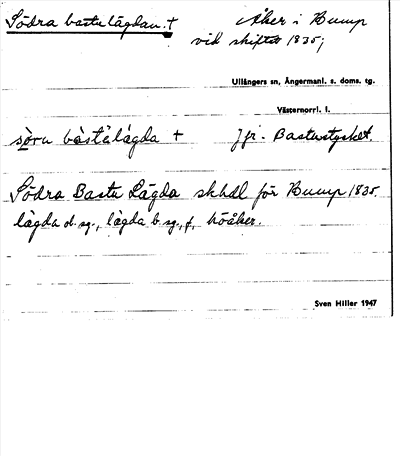 Södra bastulägdan. †
Åker i Bump
vid skiftet 1835;
Ullångers sn, Ångermanl. s. doms. tg.
Västernorrl. l.
sö̀ru bàstu̇lǻgda †
Jfr. Bastustycket.
Södra Bastu Lägda skhdl för Bump 1835.
lägda ob. sg., lägda b. sg., f, höåker.
Sven Hiller 1947